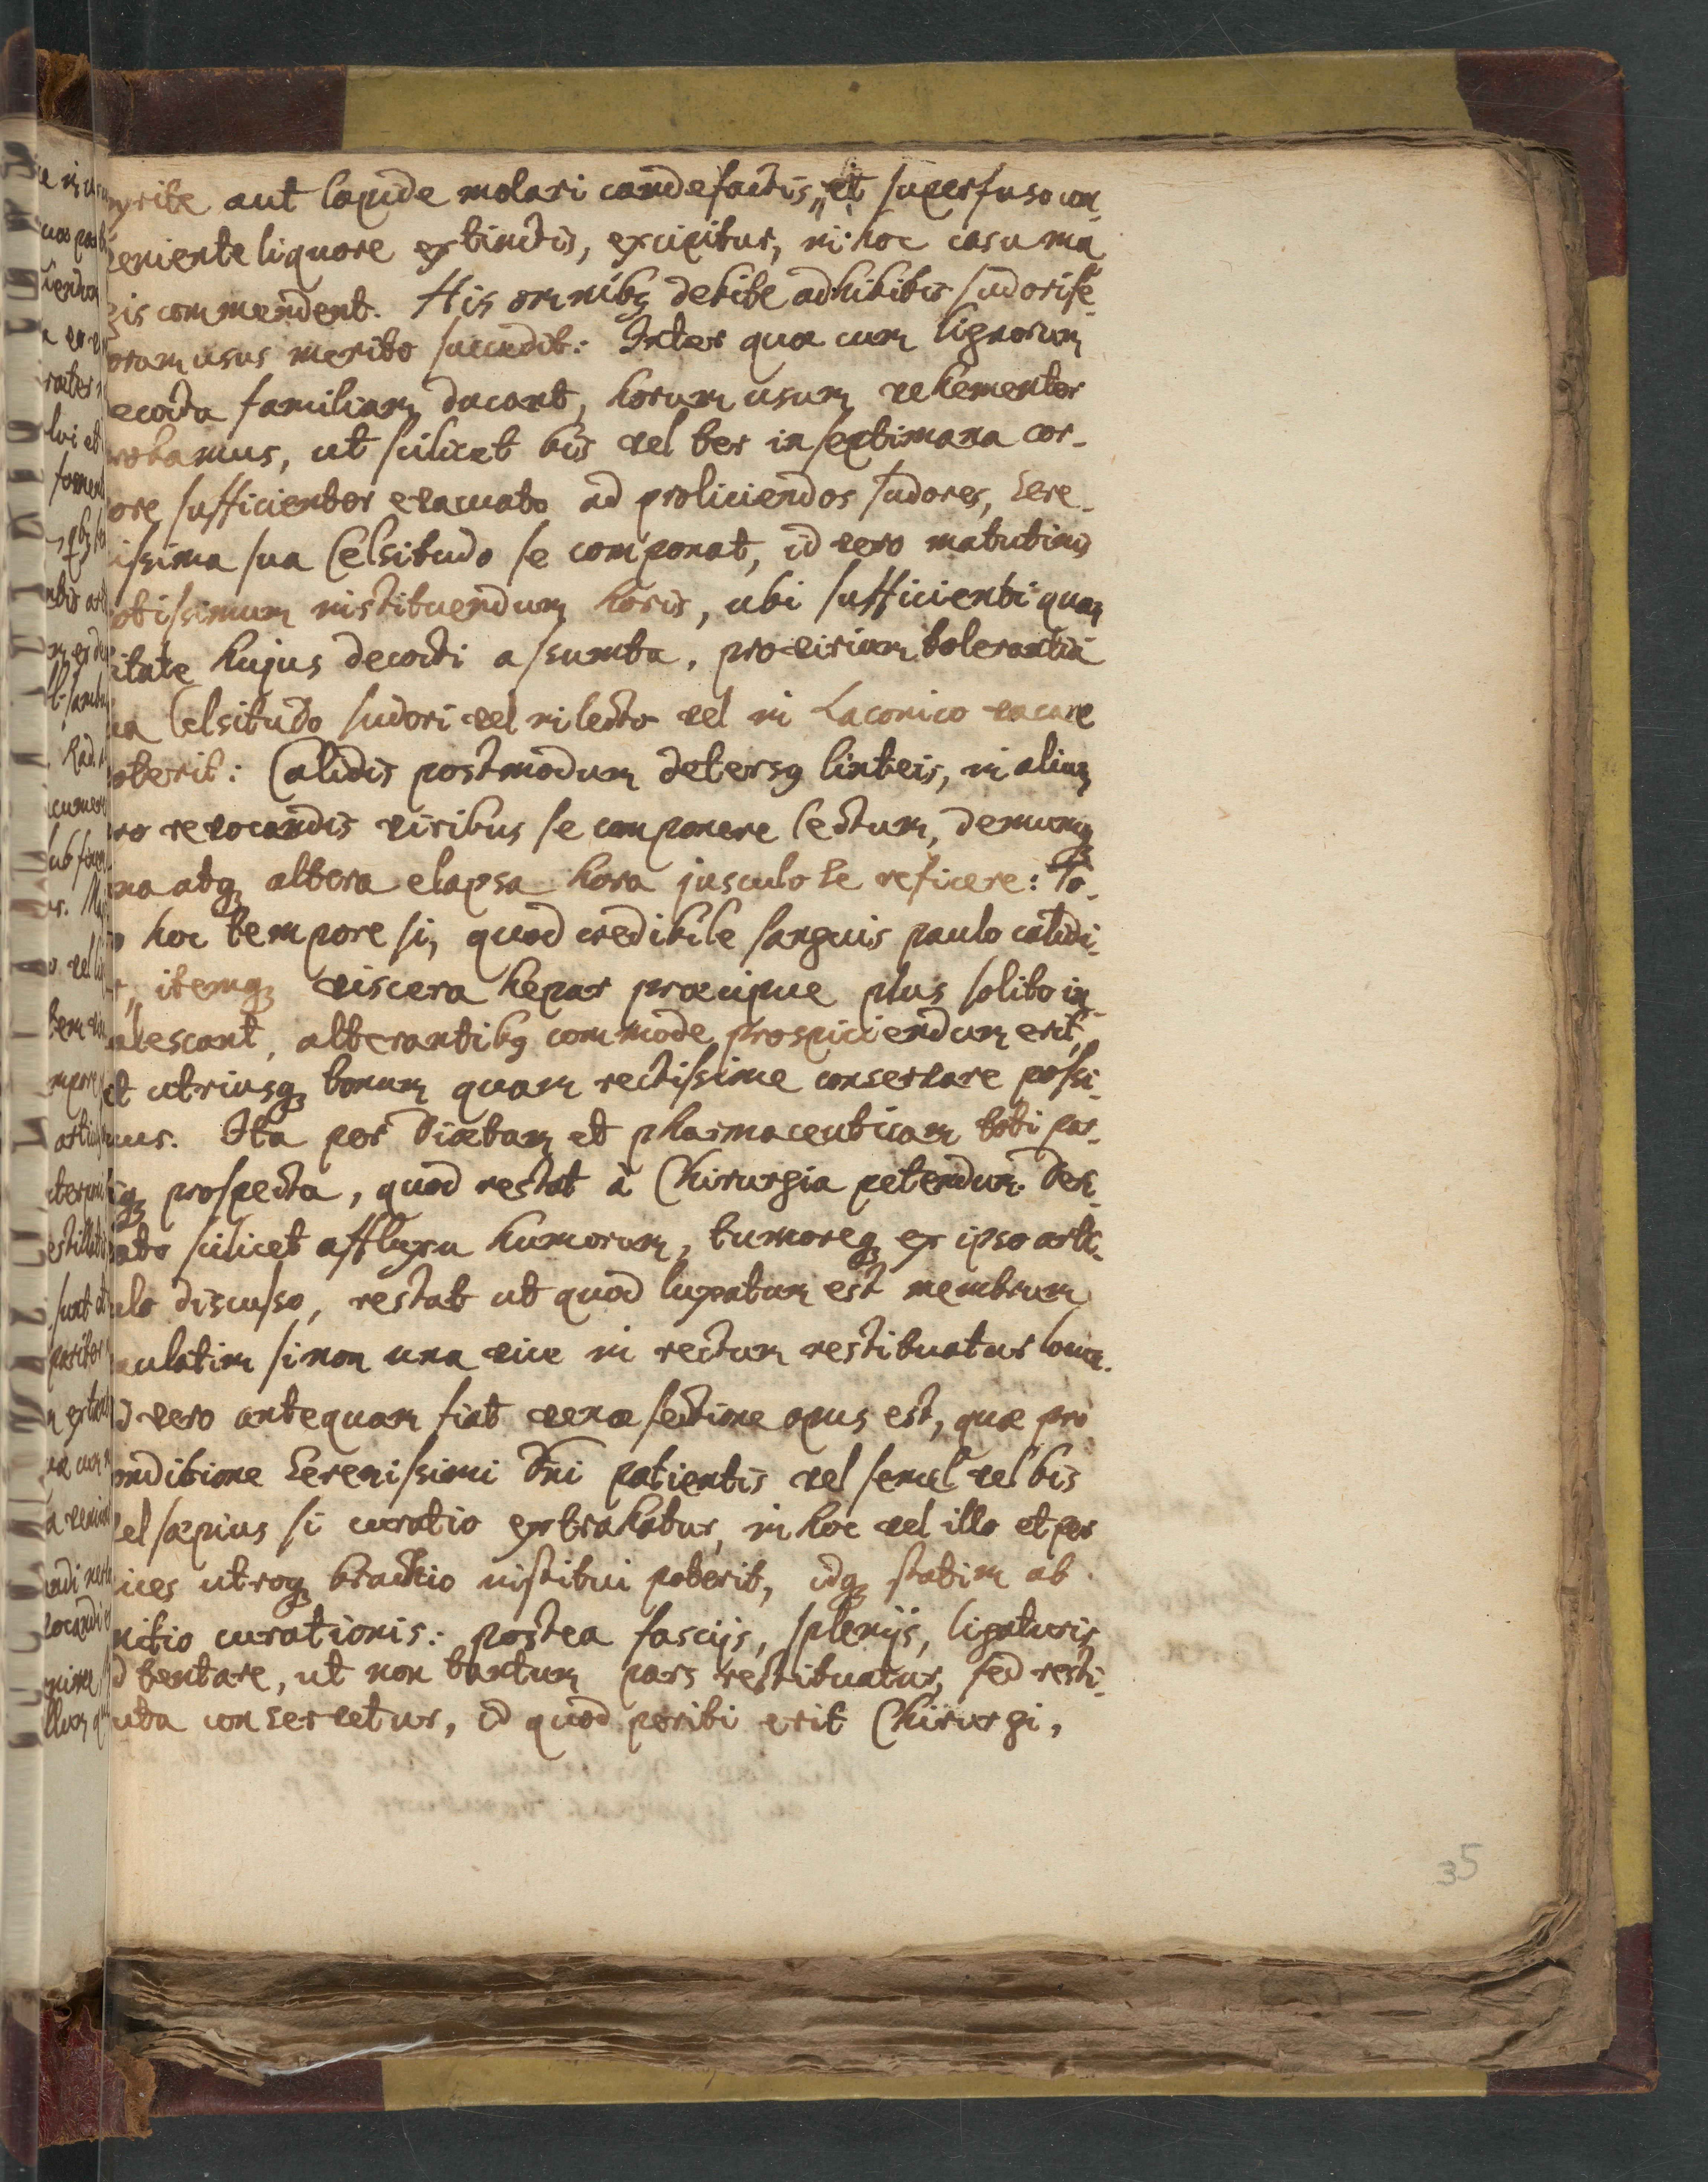 yrite aut lapide molari candefactis, et superfuso con-
veniente liquore extinctis, excipitur, in hoc casu ma
gis commendent. His omnibq debite adhibitis sudorife-
orum usus merito succedit: Inter quæ cum lignorum
ecocta familiam ducant, horum usum vehementer
robamus, ut scilicet bis vel ter in septimana cor-
ore sufficienter evacuato ad proliciendos sudores, Sere-
issima sua Celsitudo se componat, id vero matutinis
otissimum instituendum horis, ubi sufficienti quan
titate hujus decocti assumta, pro virium tolerantia
ua Celsitudo sudori vel in lecto vel in Laconico vacare
oterit: Calidis postmodum detersq linteis, in alium
ro revocandis viribus se componere lectum, demumq
una atq altera elapsa hora jusculo se reficere: To-
o hoc tempore si, quod credibile sanguis paulo calidi-
r, itemq viscera hepar præcipue plus solito in-
alescant, alterantibq commode prospiciendum erit,
et utriusq bonum quam rectissime conservare possi-
mus. Ita per Diætam et pharmaceuticam toti par-
iq prospecta, quod restat à Chirurgia petendum. Deri-
ato scilicet affluxu humorum, tumoreq ex ipso arti-
ulo discusso, restat ut quod luxatum est membrum
aulatim si non una vice in rectum restituatur locum.
d vero antequam fiat venæ sectione opus est, quæ pro
onditione Serenissimi Dni patientis vel semel vel bis
vel sæpius si curatio extrahatur, in hoc vel illo et per
ices utroq brachio institui poterit, idq statim ab
nitio curationis: postea fascijs, splenijs, ligaturis
d tentare, ut non tantum pars restituatur, sed resti-
uta conservetur, id quod periti erit Chirurgi,
35